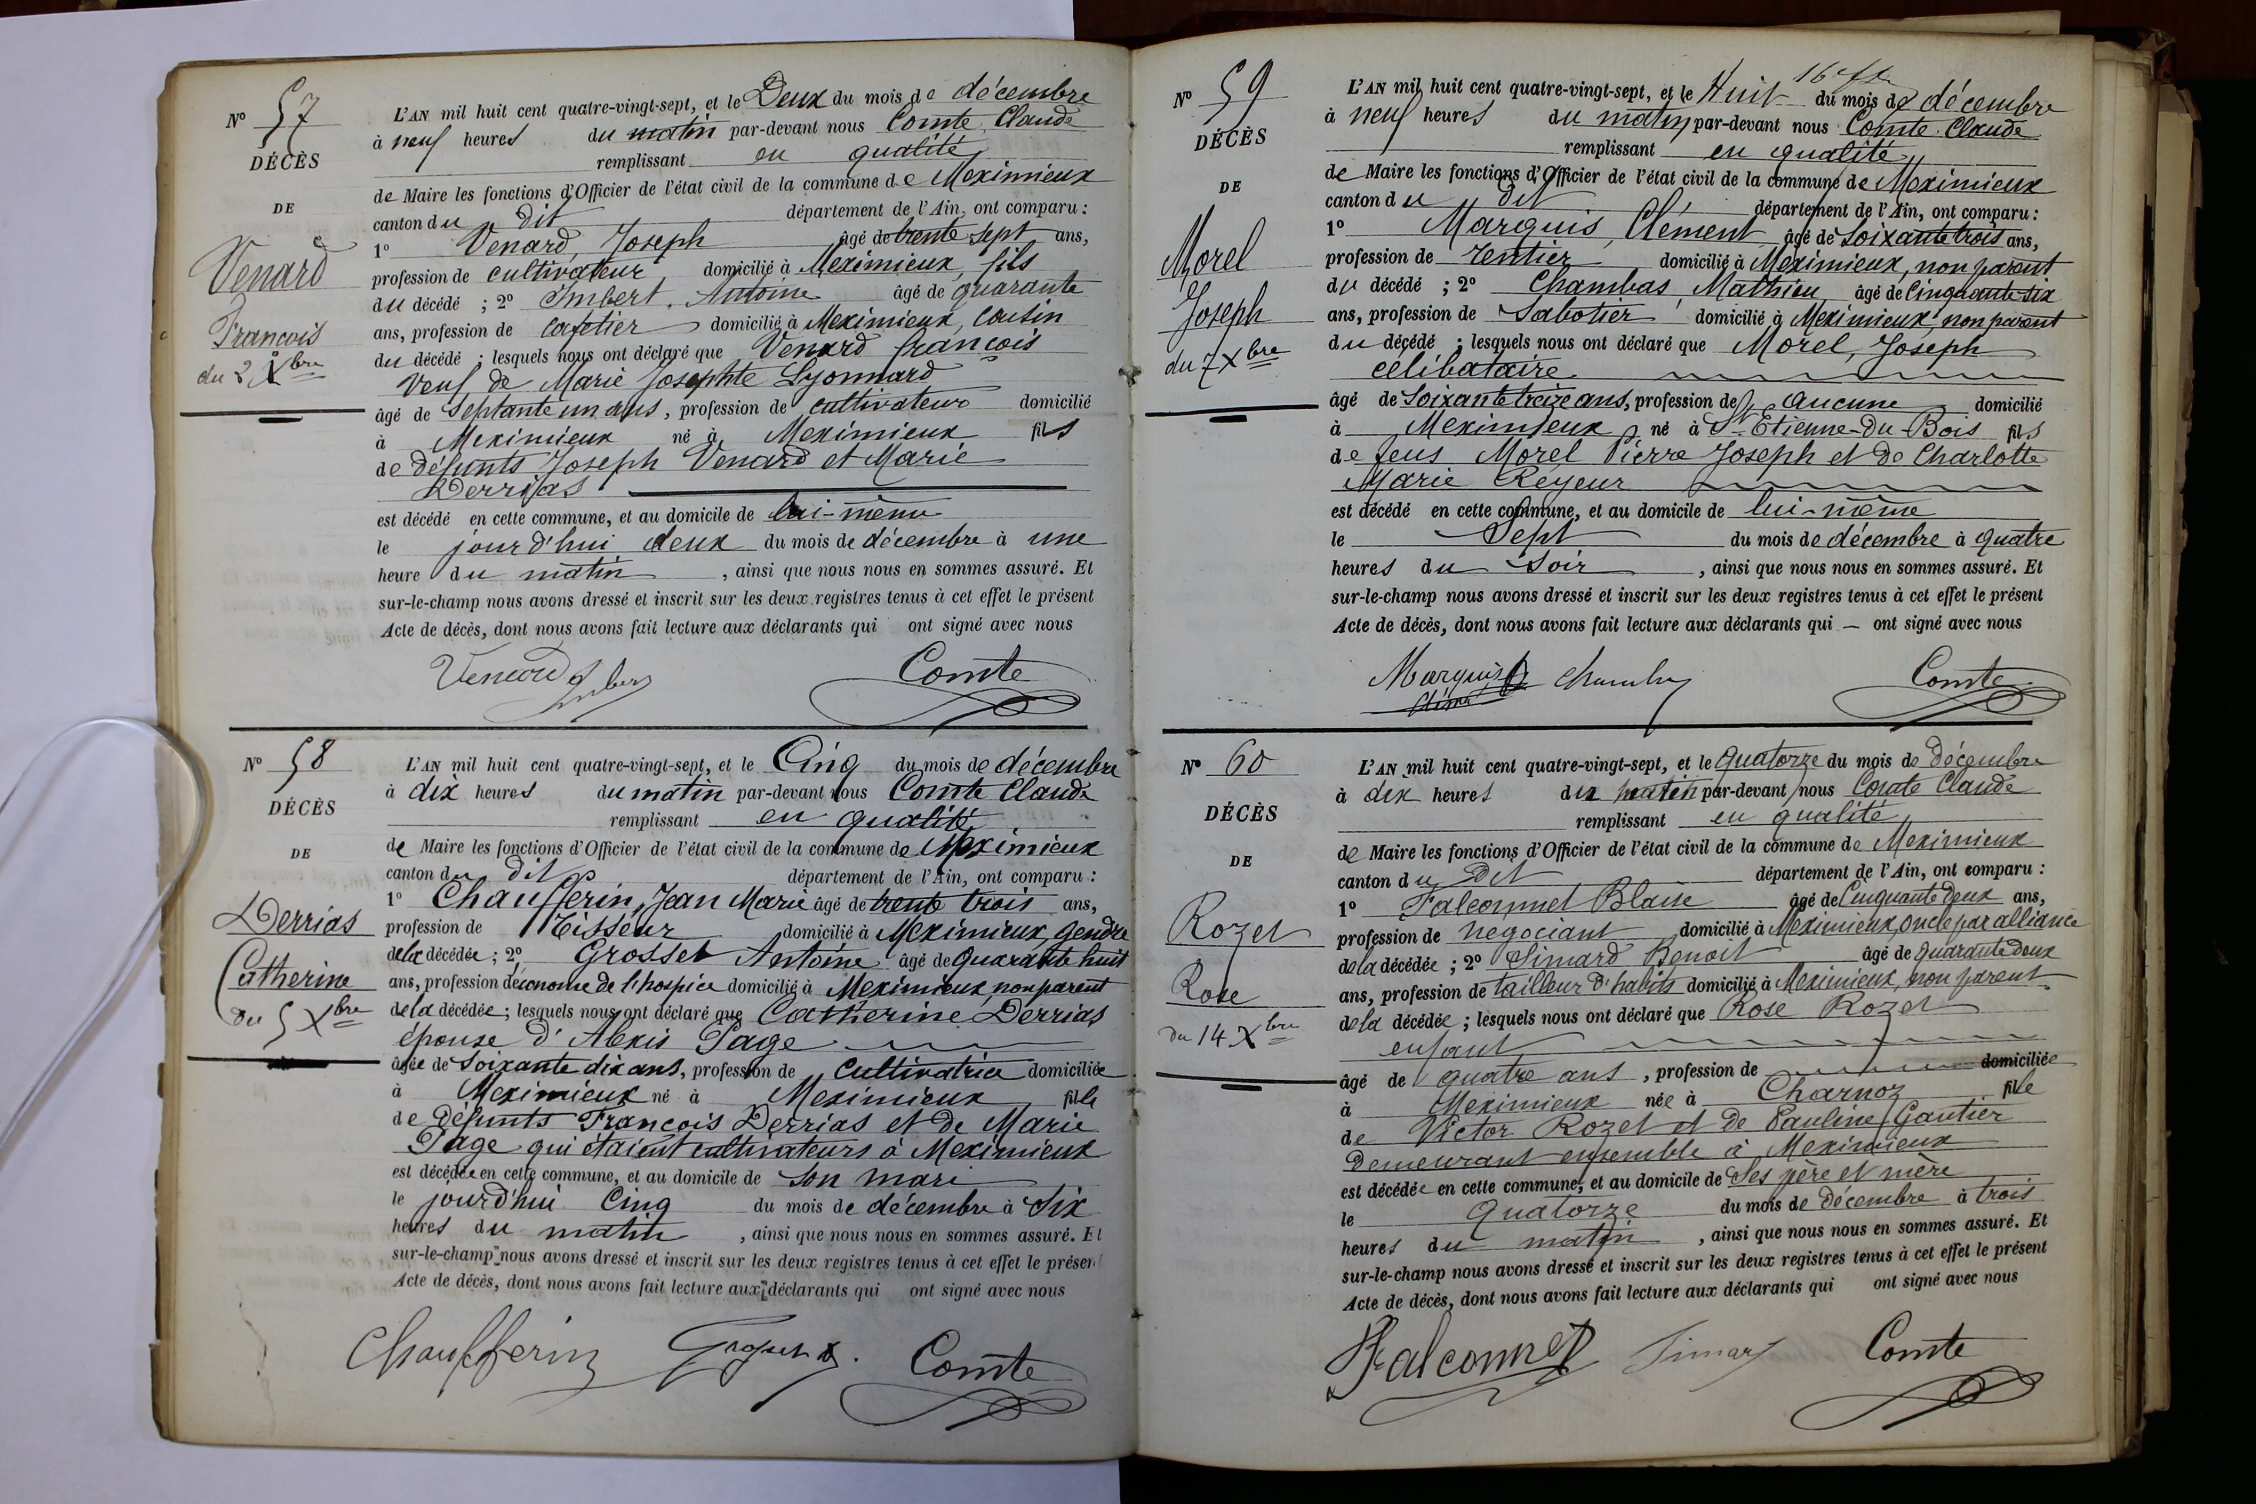 Nº 57
DÉCÈS
DE
Venard
François
du 2 Xbre
L'AN mil huit cent quatre-vingt-sept, et le Deux du mois de décembre
à neuf heures du matin par-devant nous Comte Claude
remplissant en qualité
de Maire les fonctions d'Officier de l'état civil de la commune de Meximieux
canton du dit département de l'Ain, ont comparu :
1º Venard, Joseph âgé de trente sept ans,
profession de cultivateur domicilié à Meximieux, fils
du décédé ; 2º Imbert, Antoine âgé de quarante
ans, profession de cafetier domicilié à Meximieux, cousin
du décédé ; lesquels nous ont déclaré que Venard françois
veuf de Marie Josephte Lyonnard
âgé de septante un ans, profession de cultivateur domicilié
à Meximieux né à Meximieux fils
de défunts Joseph Venard et Marie
Derrias
est décédé en cette commune, et au domicile de lui-même
le jourd'hui deux du mois de décembre à une
heure du matin, ainsi que nous nous en sommes assuré. Et
sur-le-champ nous avons dressé et inscrit sur les deux registres tenus à cet effet le présent
Acte de décès, dont nous avons fait lecture aux déclarants qui ont signé avec nous
Venard Imbert Comte
Nº 58
DÉCÈS
DE
Derrias
Catherine
du 5 Xbre
L'AN mil huit cent quatre-vingt-sept, et le Cinq du mois de décembre
à dix heures du matin par-devant nous Comte Claude
remplissant en qualité
de Maire les fonctions d'Officier de l'état civil de la commune de Meximieux
canton du dit département de l'Ain, ont comparu :
1º Chaufferin, Jean Marie âgé de trente trois ans,
profession de Tisseur domicilié à Meximieux, gendre
de la décédée ; 2º Grosset Antoine âgé de Quarante huit
ans, profession d'économe de l'hospice domicilié à Meximieux, non parent
de la décédée ; lesquels nous ont déclaré que Catherine Derrias
épouse d'Alexis Page
âgée de soixante dix ans, profession de Cultivatrice domiciliée
à Meximieux né à Meximieux fille
de défunts François Derrias et de Marie
Page qui étaient cultivateurs à Meximieux
est décédée en cette commune, et au domicile de son mari
le jourd'hui Cinq du mois de décembre à Six
heures du matin, ainsi que nous nous en sommes assuré. Et
sur-le-champ nous avons dressé et inscrit sur les deux registres tenus à cet effet le présent
Acte de décès, dont nous avons fait lecture aux déclarants qui ont signé avec nous
Chaufferin Grosset Comte
Nº 59
DÉCÈS
DE
Morel
Joseph
du 7 Xbre
L'AN mil huit cent quatre-vingt-sept, et le Huit du mois de décembre
à neuf heures du matin par-devant nous Comte Claude
remplissant en qualité
de Maire les fonctions d'Officier de l'état civil de la commune de Meximieux
canton du dit département de l'Ain, ont comparu :
1º Marquis, Clément âgé de soixante trois ans,
profession de rentier domicilié à Meximieux, non parent
du décédé ; 2º Chambas, Mathieu âgé de Cinquante six
ans, profession de Sabotier domicilié à Meximieux, non parent
du décédé ; lesquels nous ont déclaré que Morel, Joseph
célibataire
âgé de Soixante treize ans, profession de aucune domicilié
à Meximieux né à St Etienne-Du-Bois fils
de feus Morel Pierre Joseph et de Charlotte
Marie Reyeur
est décédé en cette commune, et au domicile de lui-même
le Sept du mois de décembre à quatre
heures du soir, ainsi que nous nous en sommes assuré. Et
sur-le-champ nous avons dressé et inscrit sur les deux registres tenus à cet effet le présent
Acte de décès, dont nous avons fait lecture aux déclarants qui — ont signé avec nous
Marquis Chambas Comte
Clément
Nº 60
DÉCÈS
DE
Rozet
Rose
du 14 Xbre
L'AN mil huit cent quatre-vingt-sept, et le quatorze du mois de Décembre
à dix heures du matin par-devant nous Comte Claude
remplissant en qualité
de Maire les fonctions d'Officier de l'état civil de la commune de Meximieux
canton du Dit département de l'Ain, ont comparu :
1º Falconnet Blaise âgé de Cinquante Deux ans,
profession de negociant domicilié à Meximieux, oncle par alliance
de la décédée ; 2º Simard Benoit âgé de quarante Deux
ans, profession de tailleur d'habits domicilié à Meximieux, non parent
de la décédée ; lesquels nous ont déclaré que Rose Rozet
enfant
âgé de quatre ans, profession de domiciliée
à Meximieux née à Charnoz fille
de Victor Rozet et de Pauline Gautier
Demeurant ensemble à Meximieux
est décédée en cette commune, et au domicile de Ses père et mère
le Quatorze du mois de Décembre à trois
heures du matin, ainsi que nous nous en sommes assuré. Et
sur-le-champ nous avons dressé et inscrit sur les deux registres tenus à cet effet le présent
Acte de décès, dont nous avons fait lecture aux déclarants qui ont signé avec nous
Falconnet Simard Comte